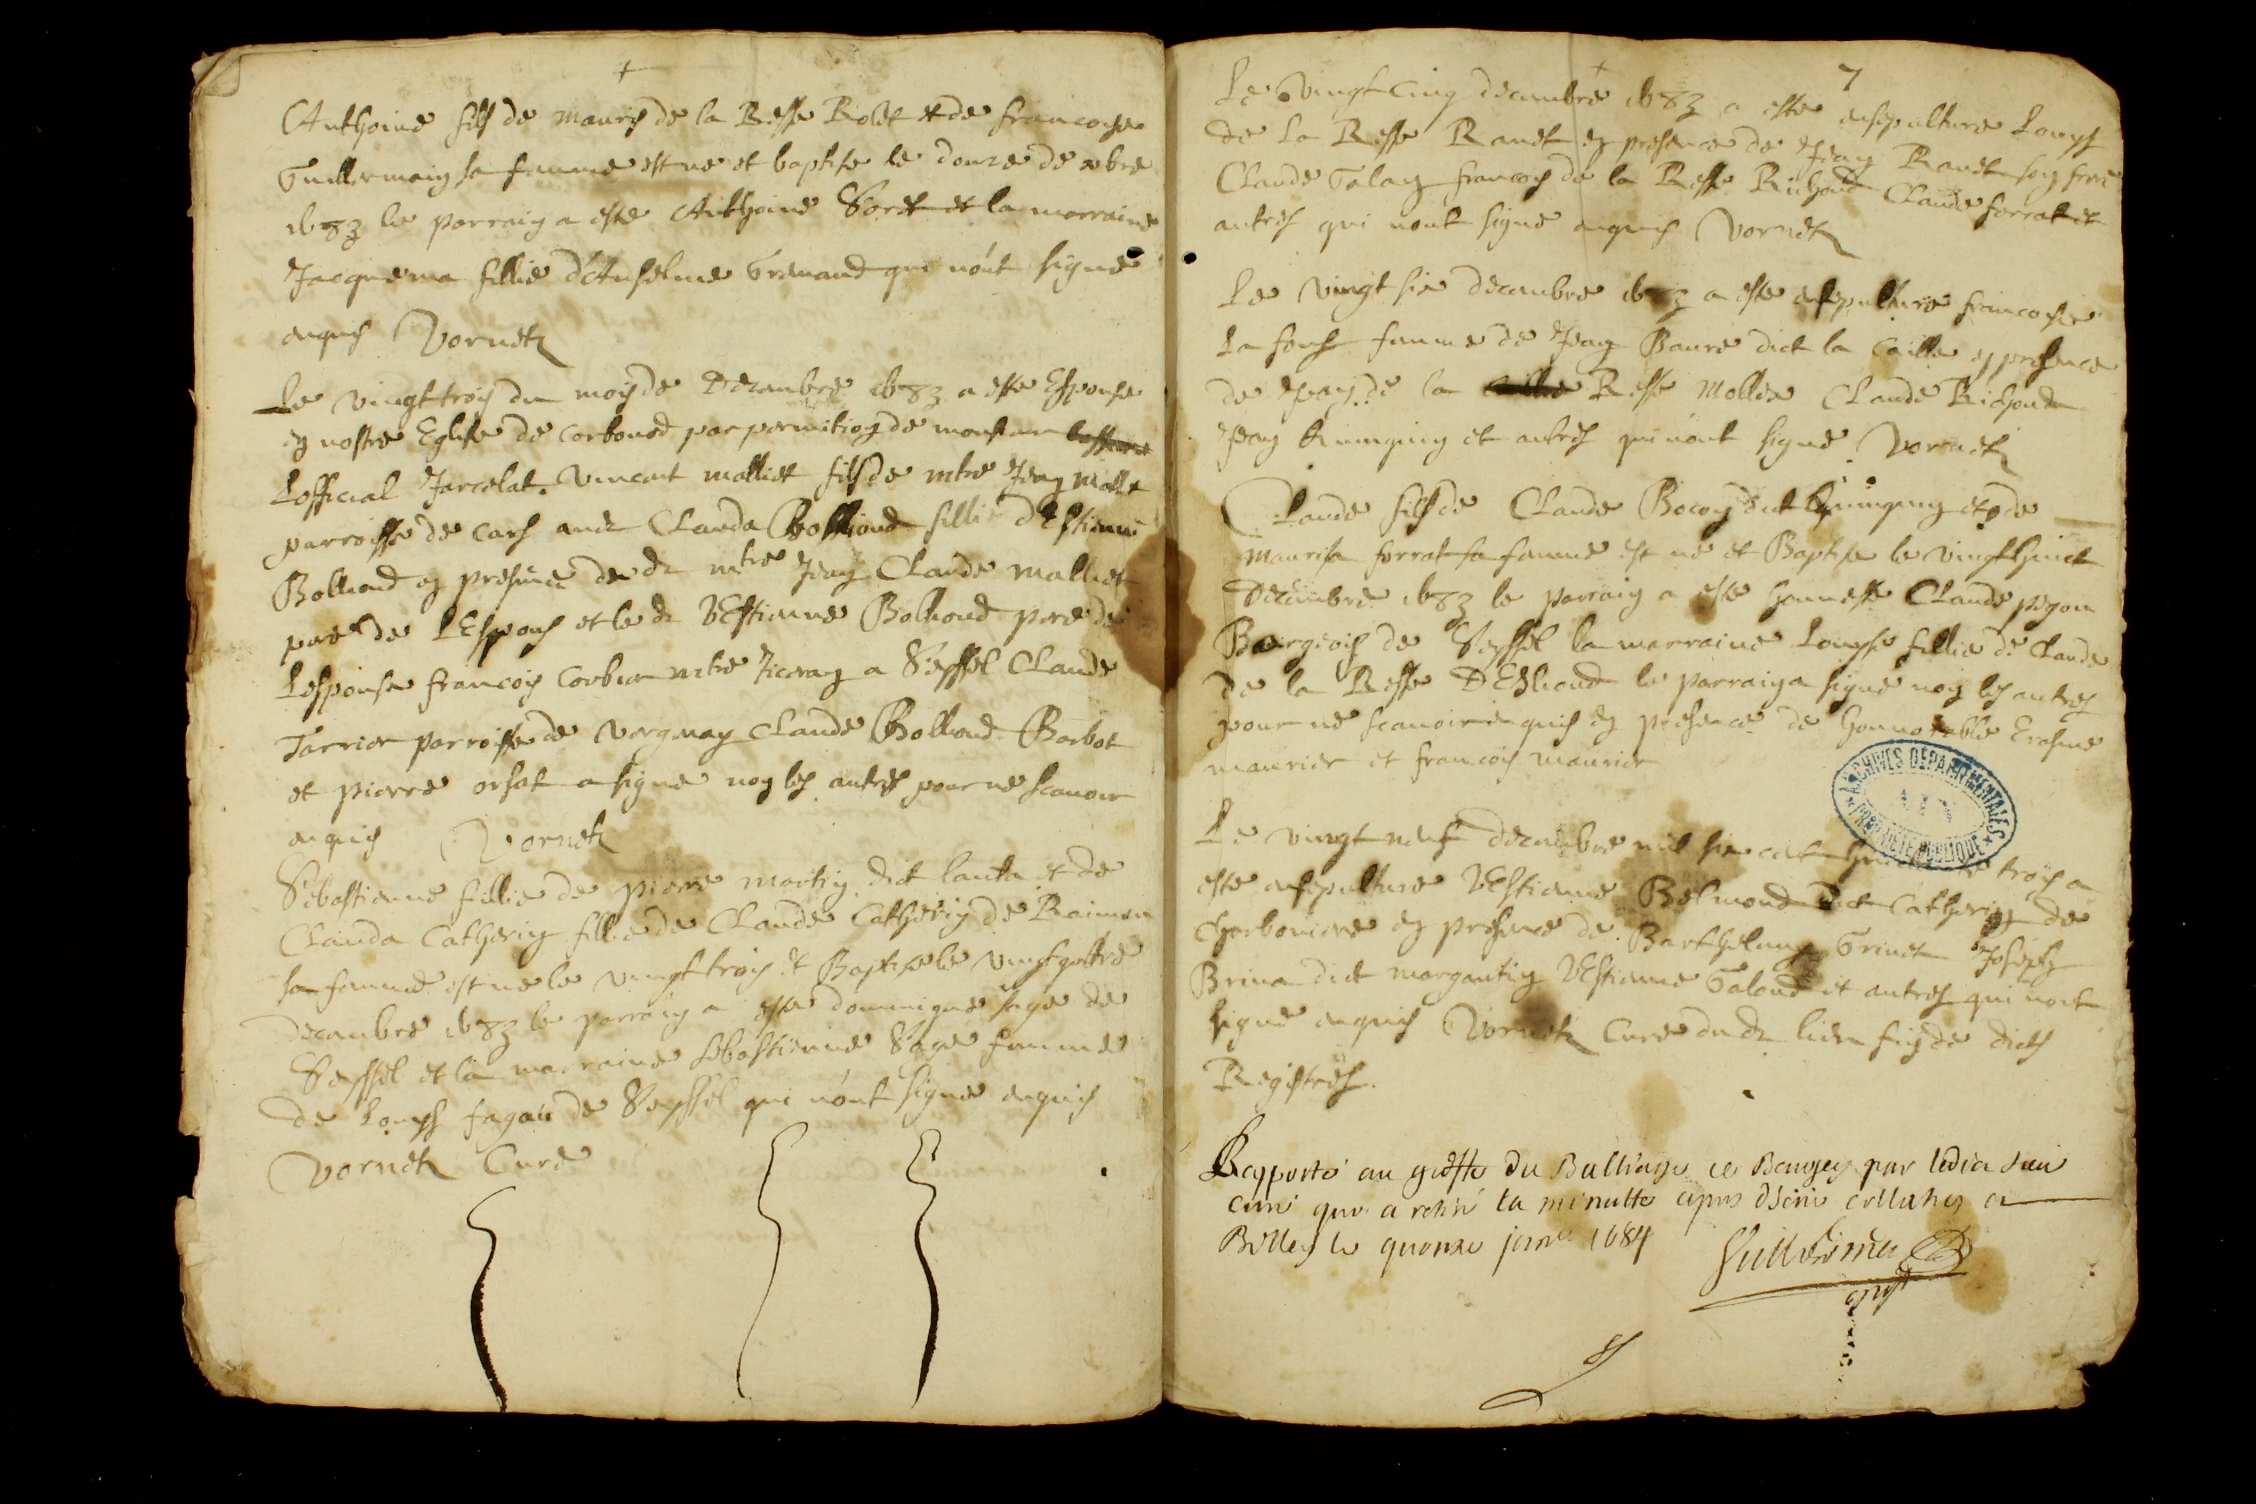 Anthoine fils de Mauris de la Besse Bolet et de francoise
Guillermain sa famme est ne et baptise le douze de xbre
1683 le parrain a este Anthoine Soret et la marraine
Jacquema fillie d'Anselme Gremand qui nónt signe
enquis Vornet
Le vingt trois du mois de Decembre 1683 a este Espouse
en nostre Eglise de Corbonod par permition de monsieur
Lofficial Jarcelat. Vincent malliet fils de mtre Jean malliet
parroisse de et Clauda Bolliond fillie d'Estienne
Bolliond en presence du dt mtre Jean Claude malliet
pere de LEspous et le dt Estienne Bolliond pere de
Lespouse francois Corbier mtre a Seyssel Claude
Tarrier parroisse de Vognay Claude Bolliond Barbot
et pierre orsat a signe non les autres pour ne scavoir
enquis Vornet
Sebastienne fillie de pierre martin dict lanta et de
Clauda Catherin fillie de Claude Catherin de
sa famme est ne le vingt trois et Baptise le vingt quatre
decembre 1683 le parrain a este dominique sage de
Seyssel et la marraine sebastienne Sage famme
de Louys de Seyssel qui nónt signe enquis
Vornet Cure
7
Le vingt cinq decembre 1683 a este ensepulture Louys
de la Besse Ranet en presence de Jean Ranet son frere
Claude Galay francois de la Besse Richond Claude forrat et
autres qui nont signe enquis Vornet
Le vingt six decembre 1683 a este ensepulture francoise
La famme de Jean dict la Caille en presence
de Jean de la Besse Mollie Claude Richond
Jean et autres qui nont signe Vornet
Claude fils de Claude Bocon dict et de
Maurisa forrat sa famme est ne et Baptise le vingt huict
Decembre 1683 le parrain a este honneste Claude
Bourgeois de Seyssel la marraine Louyse fillie de Claude
de la Besse le parrain a signe non les autres
pour ne scavoir enquis en presence de honnorable Erasme
maurier et francois maurier
Le vingt neuf decembre mil six cent trois a
este ensepulture Estienne Belmond dict Catherin de
Charboniere en presence de Barthelemy Grinet Joseph
Brina dict margantin Estienne Galand et autres qui nont
signe enquis Vornet Cure du dt lieu fin de dicts
Registres.
Rapporté au greffe du Bailliage de Baugey par ledict sieur
curé qui a retiré la minutte apres
Belley le quonze janr 1684
Guilliermin
ARCHIVES DÉPARTEMENTALES
AIN
PROPRIÉTÉ PUBLIQUE